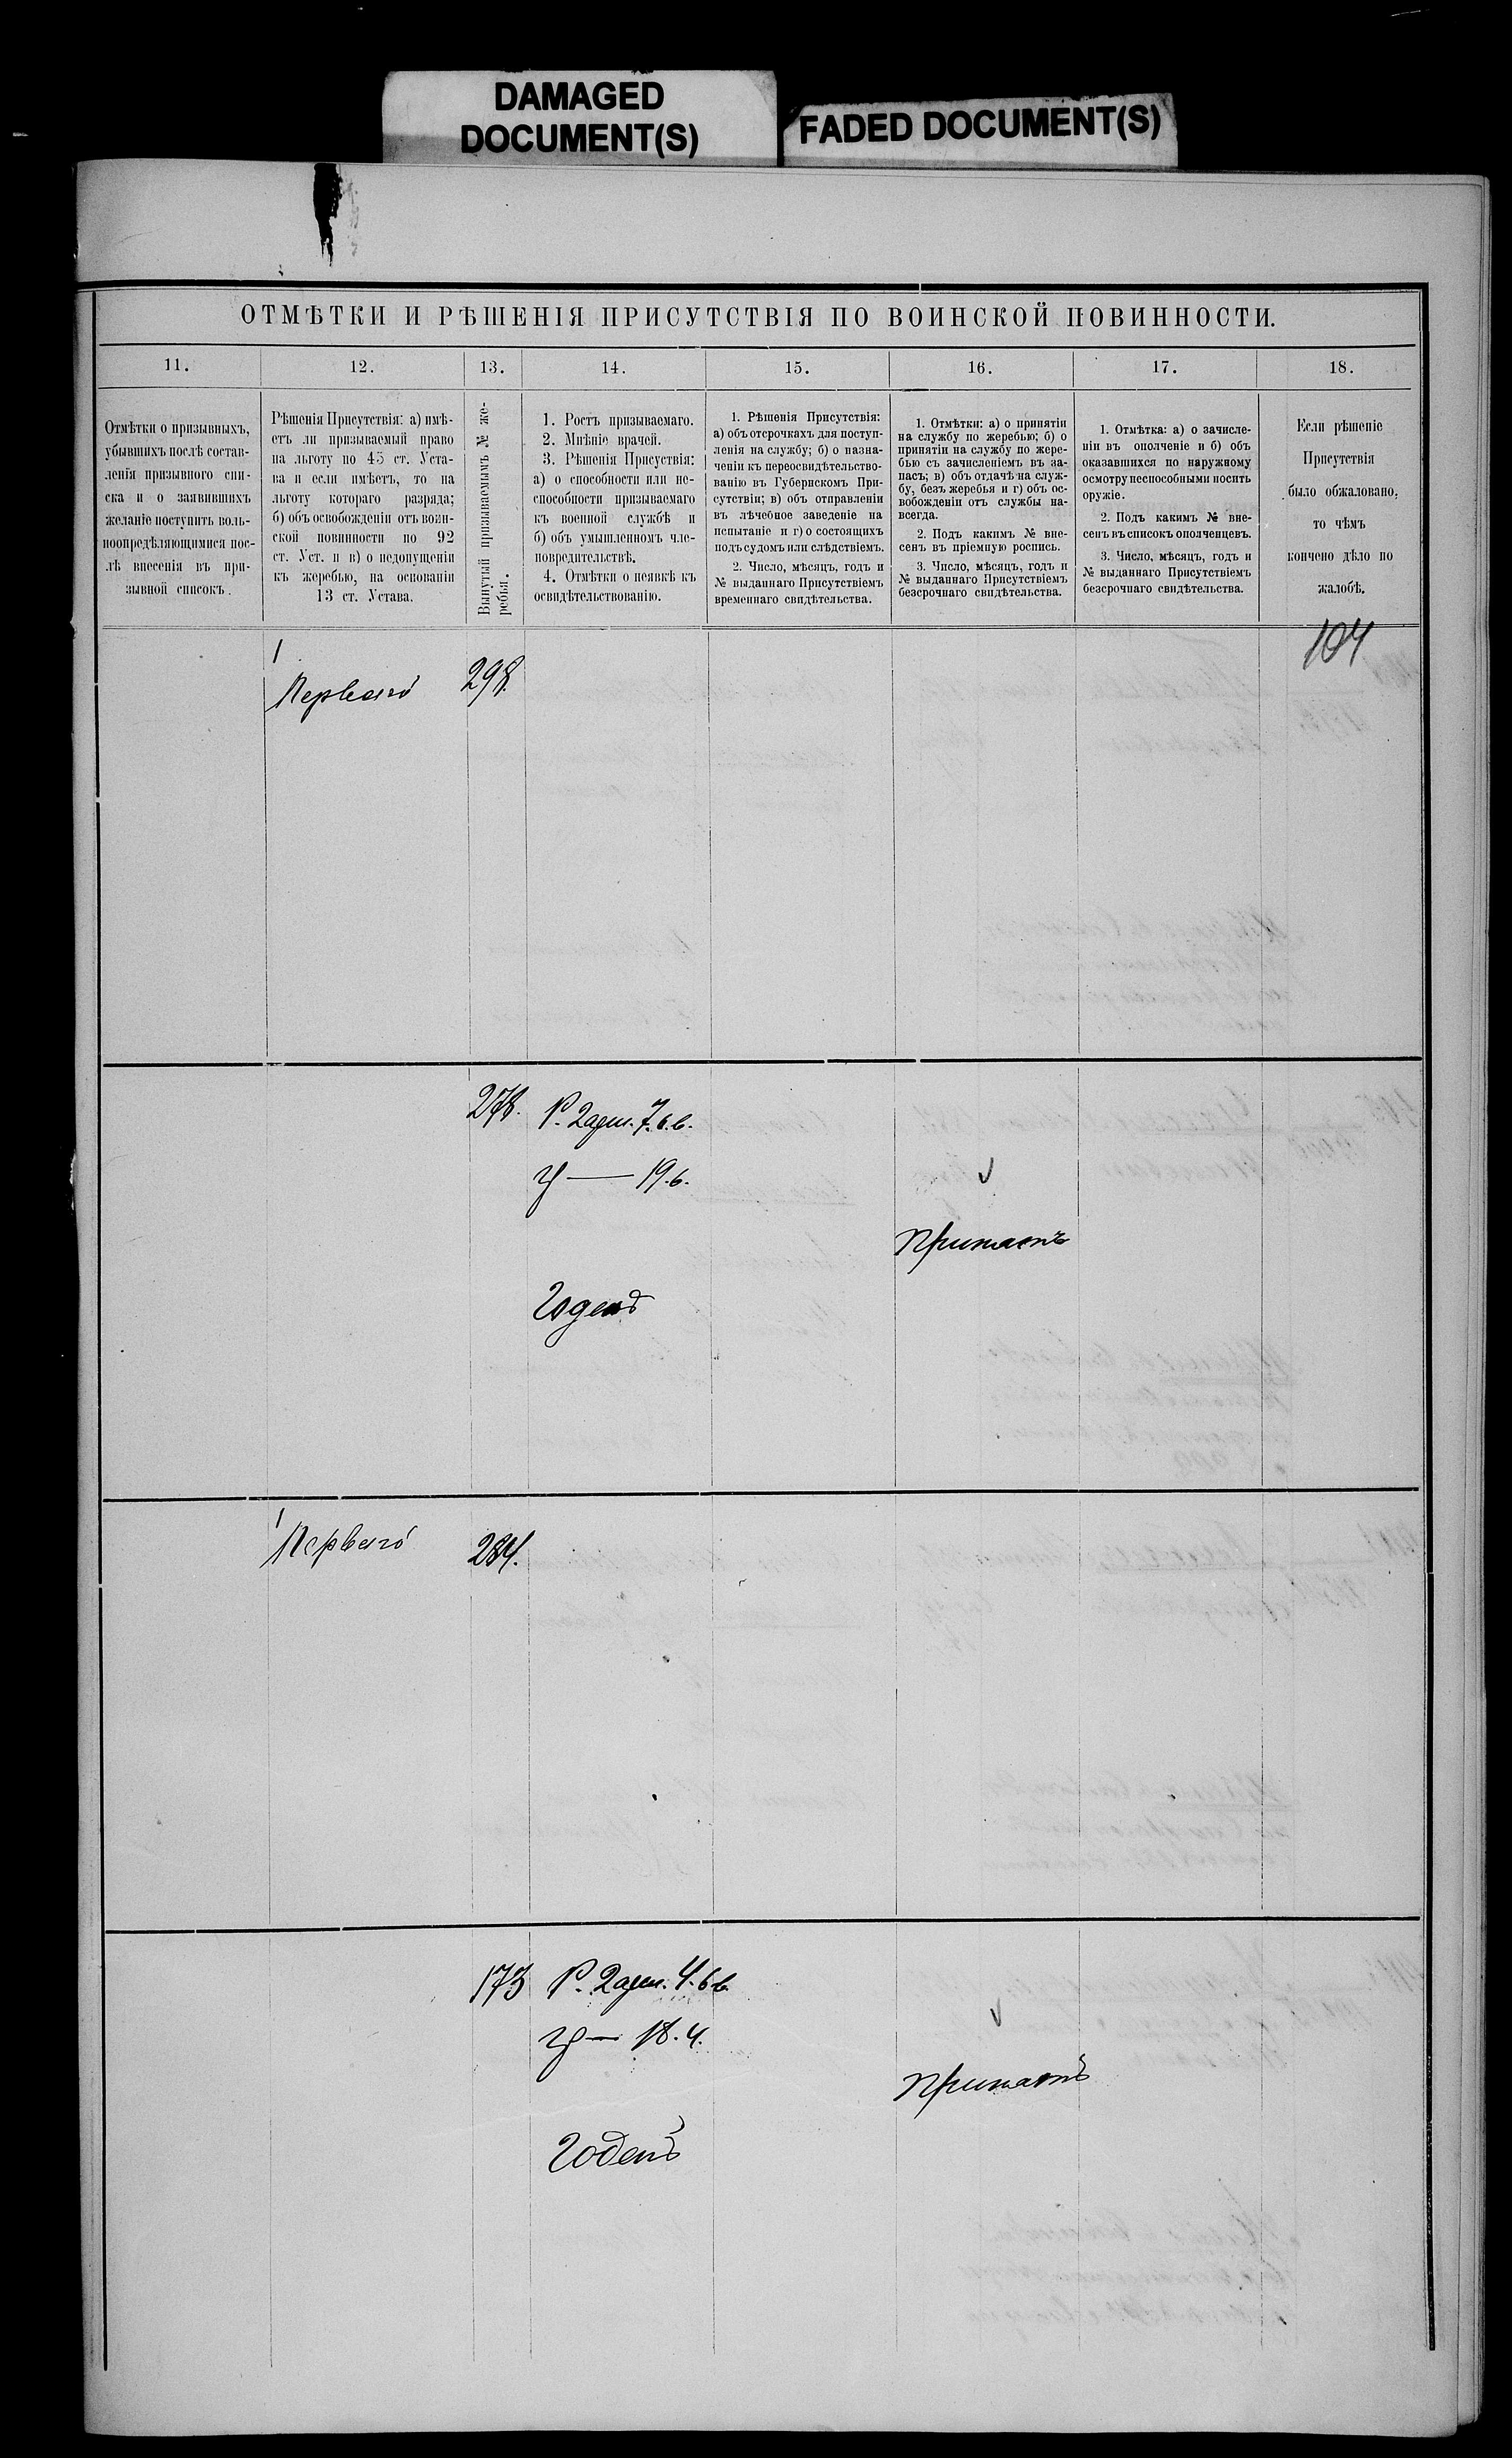 DAMAGED
DOCUMENT(S)
FADED DOCUMENT(S)
ОТМѢТКИ И РѢШЕНІЯ ПРИСУТСТВІЯ ПО ВОИНСКОЙ ПОВИННОСТИ.
11.
12.
13.
14.
15.
16.
17.
18.
Отмѣтки о призывныхъ,
убывшихъ послѣ состав-
ленія призывного спи-
ска и о заявившихъ
желаніе поступить воль-
ноопредѣляющимися пос-
лѣ внесенія въ при-
зывной списокъ.
Рѣшенія Присутствія: а) имѣ-
етъ ли призываемый право
на льготу по 45 ст. Уста-
ва и если имѣетъ, то на
льготу котораго разряда;
б) объ освобожденіи отъ воин-
ской повинности по 92
ст. Уст. и в) о недопущеніи
къ жеребью, на основаніи
13 ст. Устава.
Вынутый призываемымъ № же-
ребья.
1. Ростъ призываемаго.
2. Мнѣніе врачей.
3. Рѣшенія Присуствія:
а) о способности или не-
способности призываемаго
къ военной службѣ и
б) объ умышленномъ чле-
новредительствѣ.
4. Отмѣтки о неявкѣ къ
освидѣтельствованію.
1. Рѣшенія Присутствія:
а) объ отсрочкахъ для поступ-
ленія на службу; б) о назна-
ченіи къ переосвидѣтельство-
ванію въ Губернскомъ При-
сутствіи; в) объ отправленіи
въ лѣчебное заведеніе на
испытаніе и г) о состоящихъ
подъ судомъ или слѣдствіемъ.
2. Число, мѣсяцъ, годъ и
№ выданнаго Присутствіемъ
временнаго свидѣтельства.
1. Отмѣтки: а) о принятіи
на службу по жеребью; б) о
принятіи на службу по жере-
бью съ зачисленіемъ въ за-
пасъ; в) объ отдачѣ на служ-
бу, безъ жеребья и г) объ ос-
вобожденіи отъ службы на-
всегда.
2. Подъ какимъ № вне-
сенъ въ пріемную роспись.
3. Число, мѣсяцъ, годъ и
№ выданнаго Присутствіемъ
безсрочнаго свидѣтельства.
1. Отмѣтка: а) о зачисле-
ніи въ ополченіе и б) объ
оказавшихся по наружному
осмотру неспособными носить
оружіе.
2. Подъ какимъ № вне-
сенъ въ списокъ ополченцевъ.
3. Число, мѣсяцъ, годъ и
№ выданнаго Присутствіемъ
безсрочнаго свидѣтельства.
Если рѣшеніе
Присутствія
было обжаловано,
то чѣмъ
кончено дѣло по
жалобѣ.
104
1
Перваго
298.
278.
Р. 2 арш. 7.6.в.
19.6.
Принятъ
Годенъ
1
Перваго
284.
173
Р. 2 арш. 4.6в.
18.4.
Принятъ
Годенъ